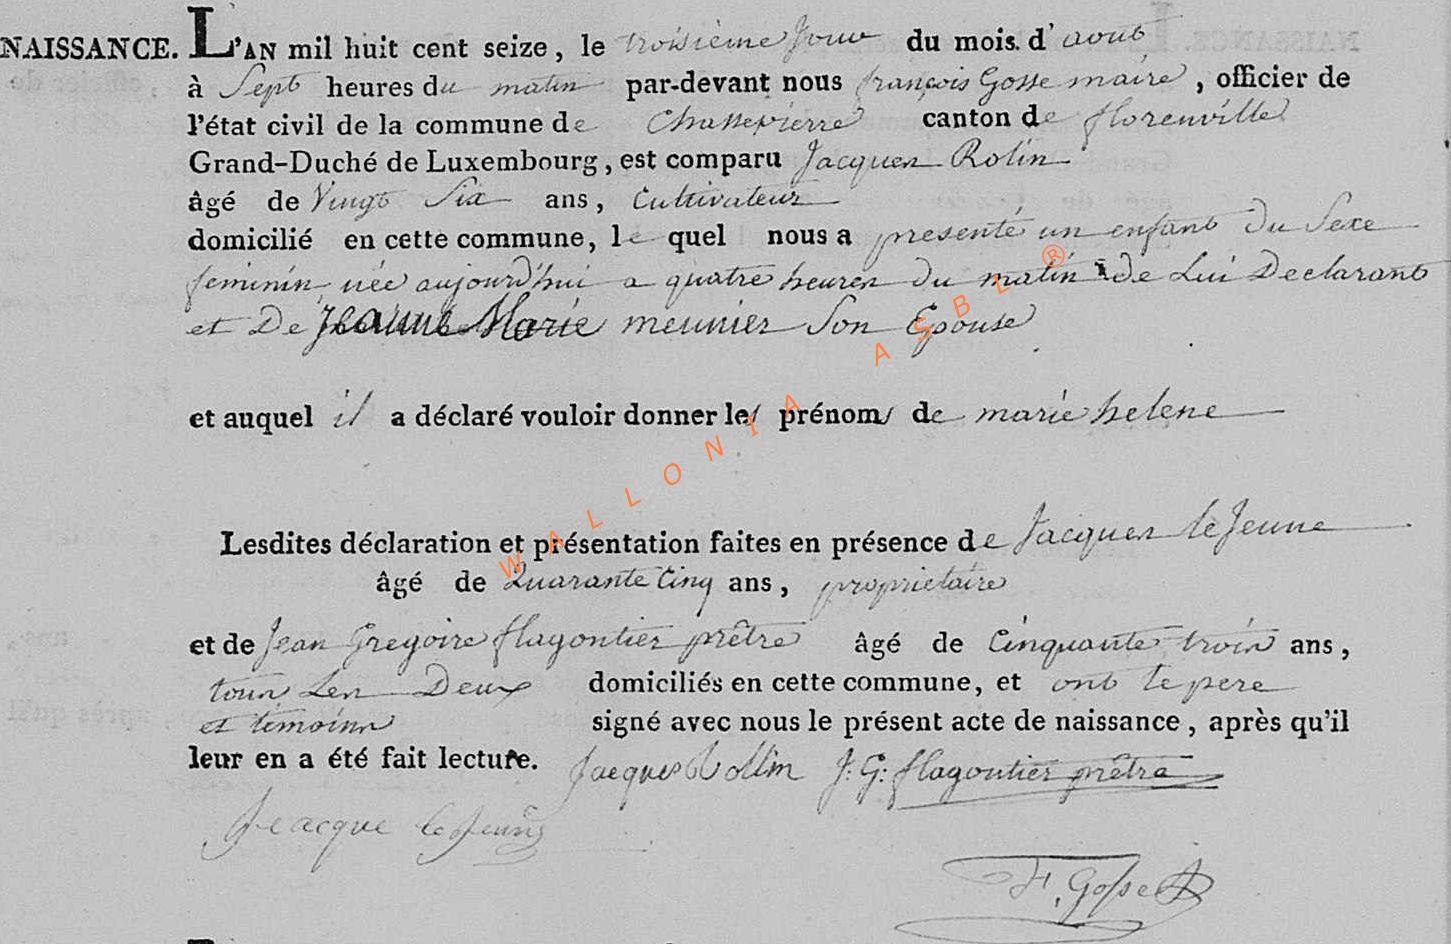 NAISSANCE. L'AN mil huit cent seize, le troisième jour du mois d'aout
à Sept heures du matin par-devant nous françois Gosse maire, officier de
l'état civil de la commune de Chassepierre canton de florenville
Grand-Duché de Luxembourg, est comparu Jacques Rolin
âgé de Vingt Six ans, Cultivateur
domicilié en cette commune, le quel nous a presenté un enfant du Sexe
feminin née aujourd'hui a quatre heures du matin de Lui Declarant
et De Jeanne Marie meunier Son Epouse
et auquel il a déclaré vouloir donner les prénoms de marie helene
Lesdites déclaration et présentation faites en présence de Jacques leJeune
âgé de Quarante Cinq ans, proprietaire
et de Jean Gregoire flagontier prêtre âgé de Cinquante trois ans,
tous Les Deux domiciliés en cette commune, et ont le pere
et témoins signé avec nous le présent acte de naissance, après qu'il
leur en a été fait lecture. Jacques Rollin J: G: flagontier prêtre
Jeacque le Jeune
F. Gosse
WALLONIA ASBL ®